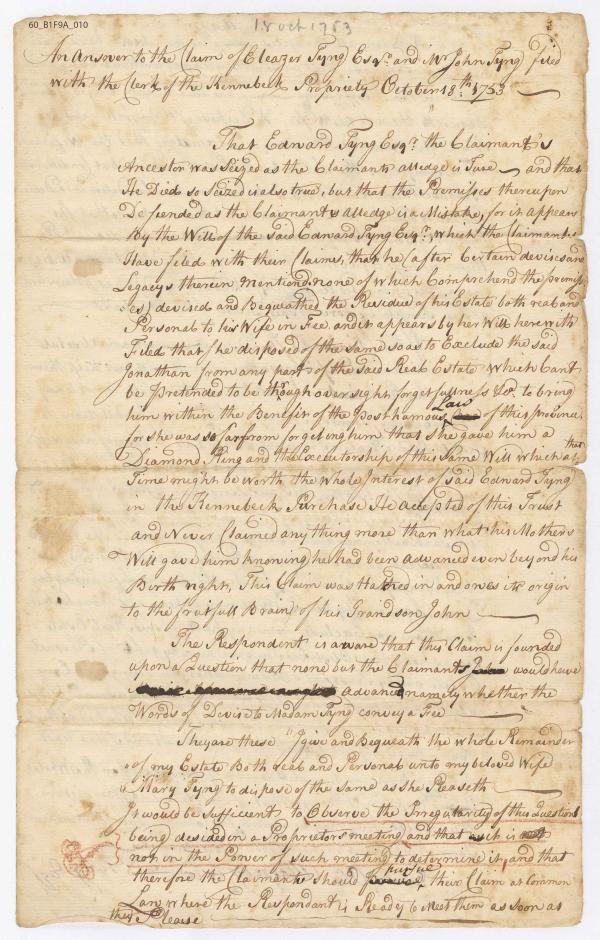 60_B1F9A_010
18 Oct 1753
An Answer to the Claim of Eleazer Tyng Esqr. and Mr John Tyng filed
with the Clerk of the Kennebeck Propriety October 18th. 1753
That Edward Tyng Esqr. the Claimant's
Ancestor was Seized as the Claimants alledge is True and that
He Died so Seized is also true, but that the Premisses thereupon
Defcended as the Claimants Alledge is a Mistake, for it appears
By the Will of the said Edward Tyng Esqr. which the Claimants
Have filed with their Claims, that he (after Certain devises and
Legacys therein mentiond, none of which Comprehend the premiss
es) devised and Bequathed the Residue of his Estate both real and
Personal to his Wife in Fee and it appears by her Will herewith
Filed that she disposed of the same so as to Exclude the said
Jonathan from any part of the said Real Estate which Cant
be Pretended to be though oversight forgetfullness &c. to bring
him within the Benefit of the Posthamous Law of this province
for she was so far from forgeting him that she gave him a
Diamond Ring and the Executorship of this same Will which at that
Time might be worth the whole Interest of said Edward Tyng
in the Kennebeck Purchase He accepted of this Trust
and Never Claimed anything more than what his Mothers
Will gave him knowing he had been advanced even beyond his
Birth right, This Claim was Hatched in and owes its origin
to the fruitfull Brain of his Grandson John
The Respondent is aware that this Claim is founded
upon a Question that none but the Claimants would have
advanced namely whether the
Words of Devise to Madam Tyng convey a Fee
They are these "I give and Bequeath the whole Remainder
of my Estate Both real and Personal unto my beloved Wife
"Mary Tyng to dispose of the same as she Pleaseth
It would be sufficient to Observe the Irregularity of this Question's
being desided in a Proprietors meeting and that it is
not in the Power of such meeting to determine it, and that
therefore the Claimants should pursue their Claim at Common
Law where the Respondant is Ready to Meet them as soon as
they Please